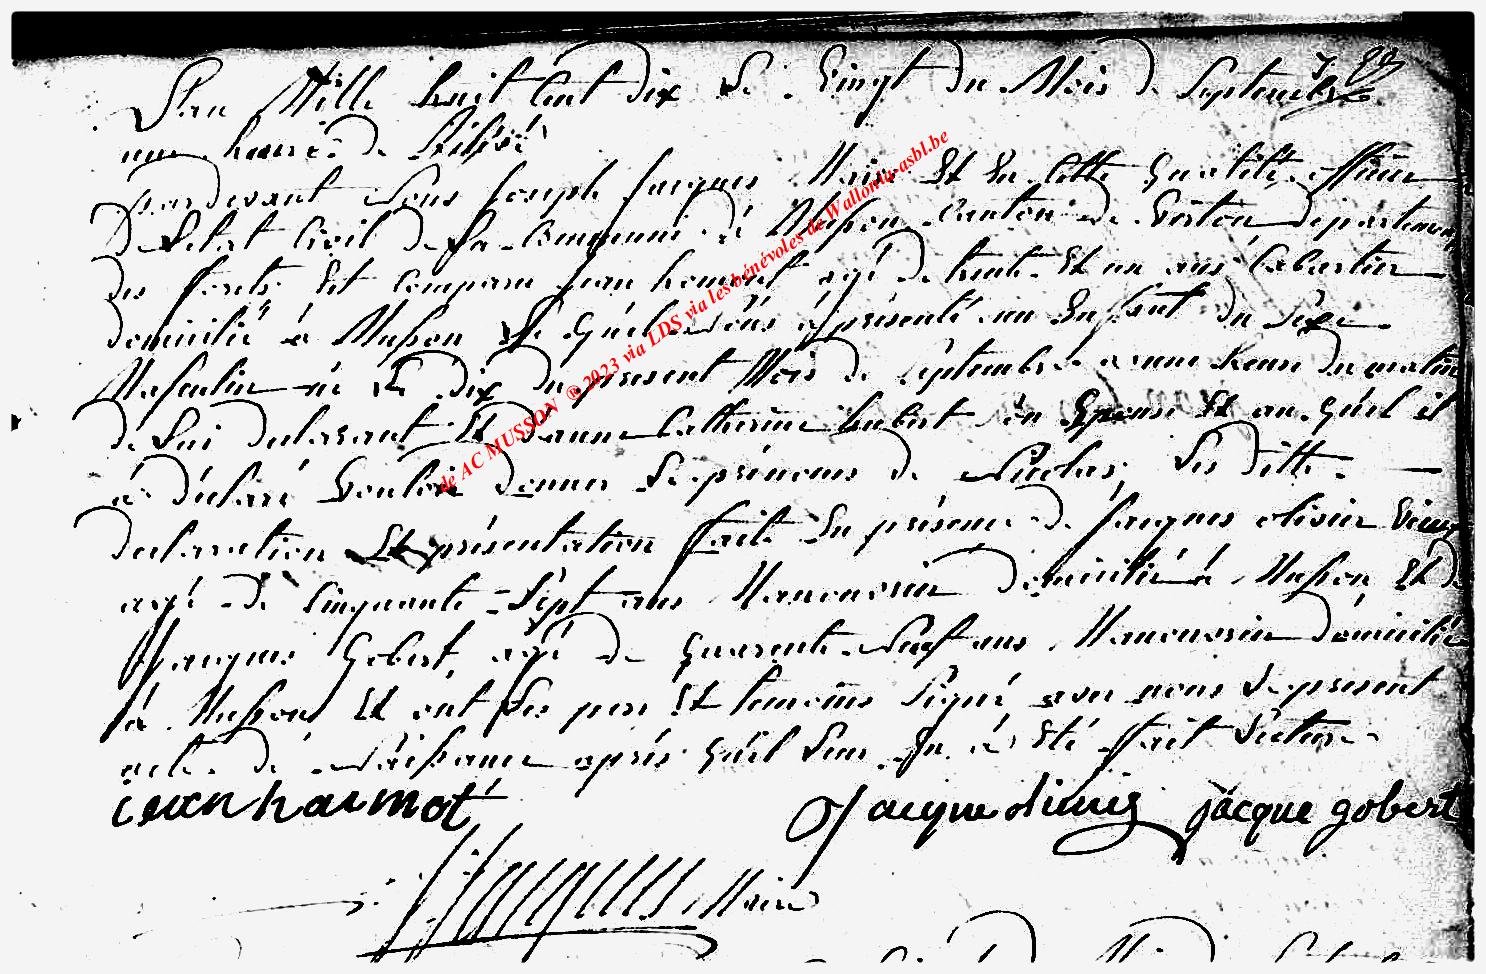 L'an Mille huit Cent dix Le Vingt du Mois de Septembre
une heure de Relevé
pardevant Nous Joseph Jacques Maire Et En Cette qualité officier
de Letat Civil de La Commune de Musson Canton de Virton departement
des forets Est Comparu jean hormot agé de trente Et un ans Cabartier
domicilié à Musson Le quel Nous à présenté un Enfant du Séxe
Masculin né Le dix du present Mois de Septembre a une heure du matin
de Lui declarant Et d'anne Catherine hubert Son Epouse Et au quel il
à déclaré Vouloir donner Le prénoms de Nicolas, Les ditte
declaration Et présentation faite En présence de Jacques
agé de Cinquante-Sept ans Manouvrier domicilié à Musson Et de
Jacques Gobert, agé de quarente Neuf ans Manouvrier domicilié
à Musson Et ont Les pere Et temoins Signé avec nous Le present
acte de Naissance aprés quil Leur En à Eté ffait Lecture
jean harmot jacque gobert
J Jacques Maire
de AC MUSSON @ 2023 via LDS via les bénévoles de Wallonia-asbl.be